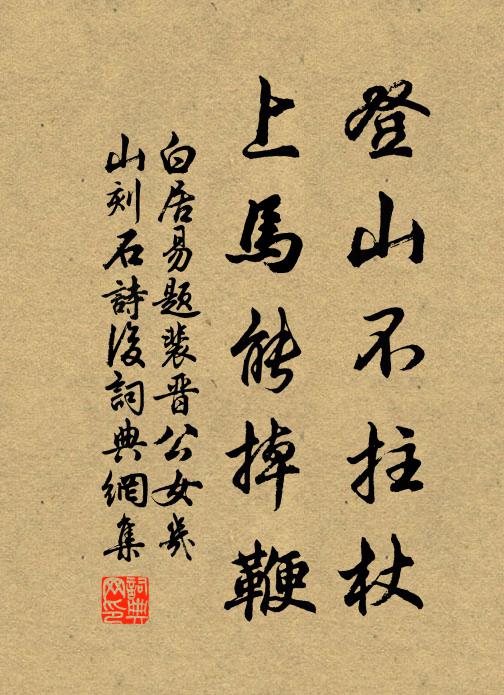 登山不拄杖
上馬能掉鞭
白居易题裴晋公女幾
山刻石詩後詞典網集
詞典網印